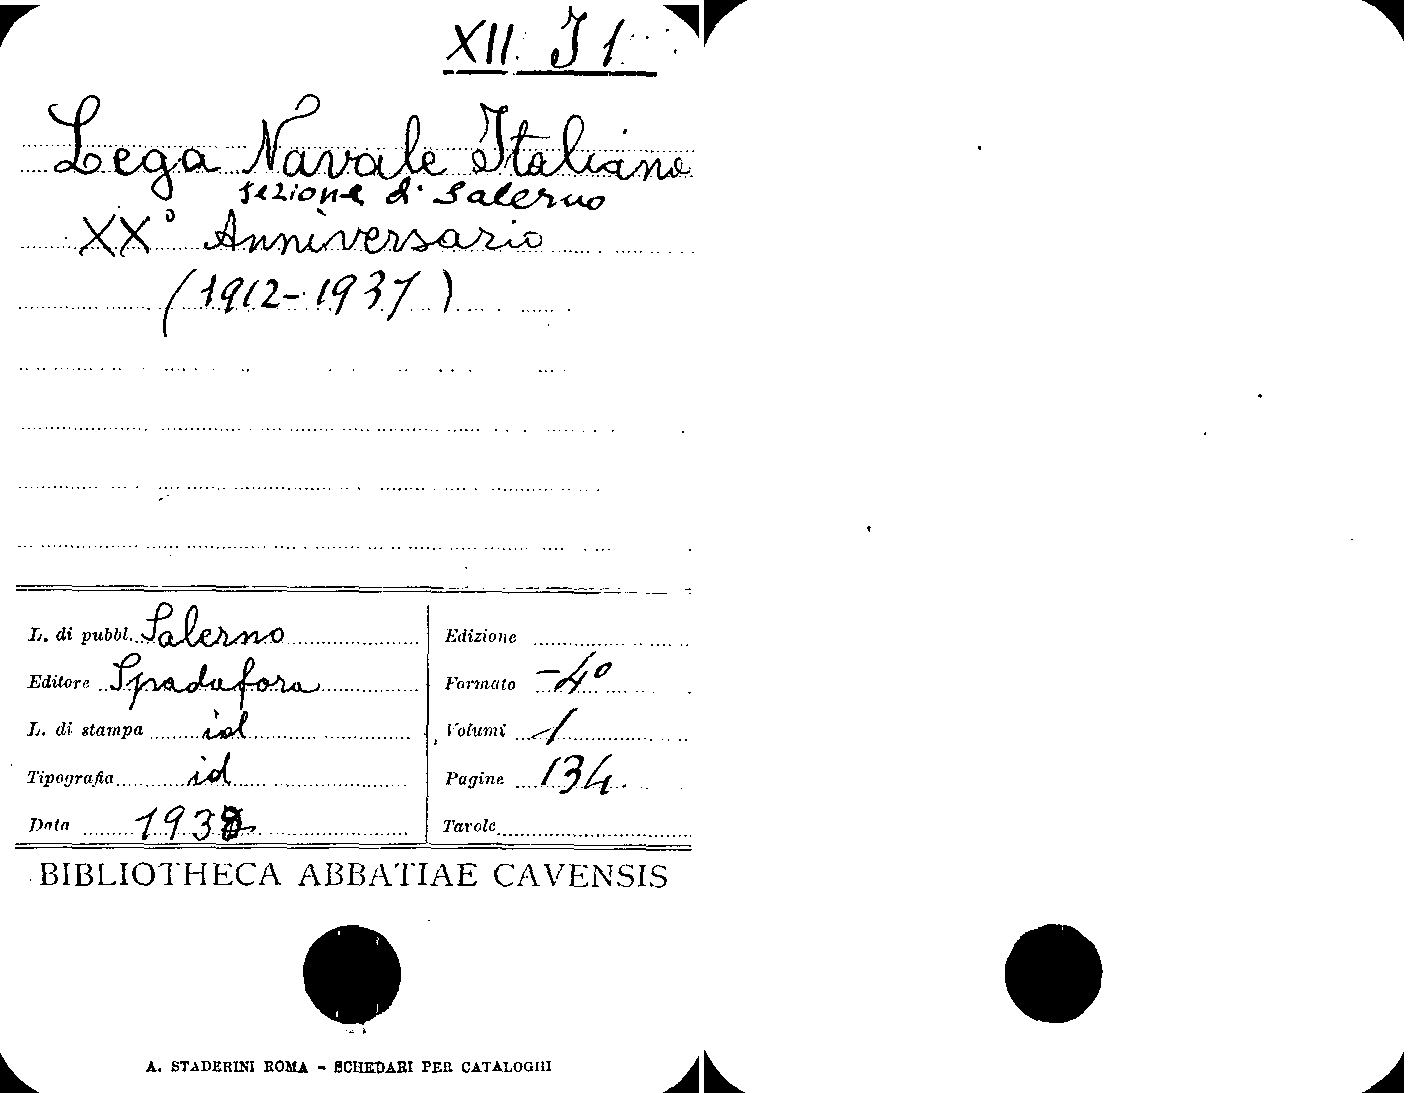 XII. J 1
Lega Navale Italiana
sezione di Salerno
XX° Anniversario
(1912-1937)
L. di pubbl. Salerno
Editore Spadafora
L. di stampa id
Tipografia id
Data 1938
Edizione
Formato -4°
Volumi 1
Pagine 134
Tavole
BIBLIOTHECA ABBATIAE CAVENSIS
A. STADERINI ROMA - SCHEDARI PER CATALOGHI